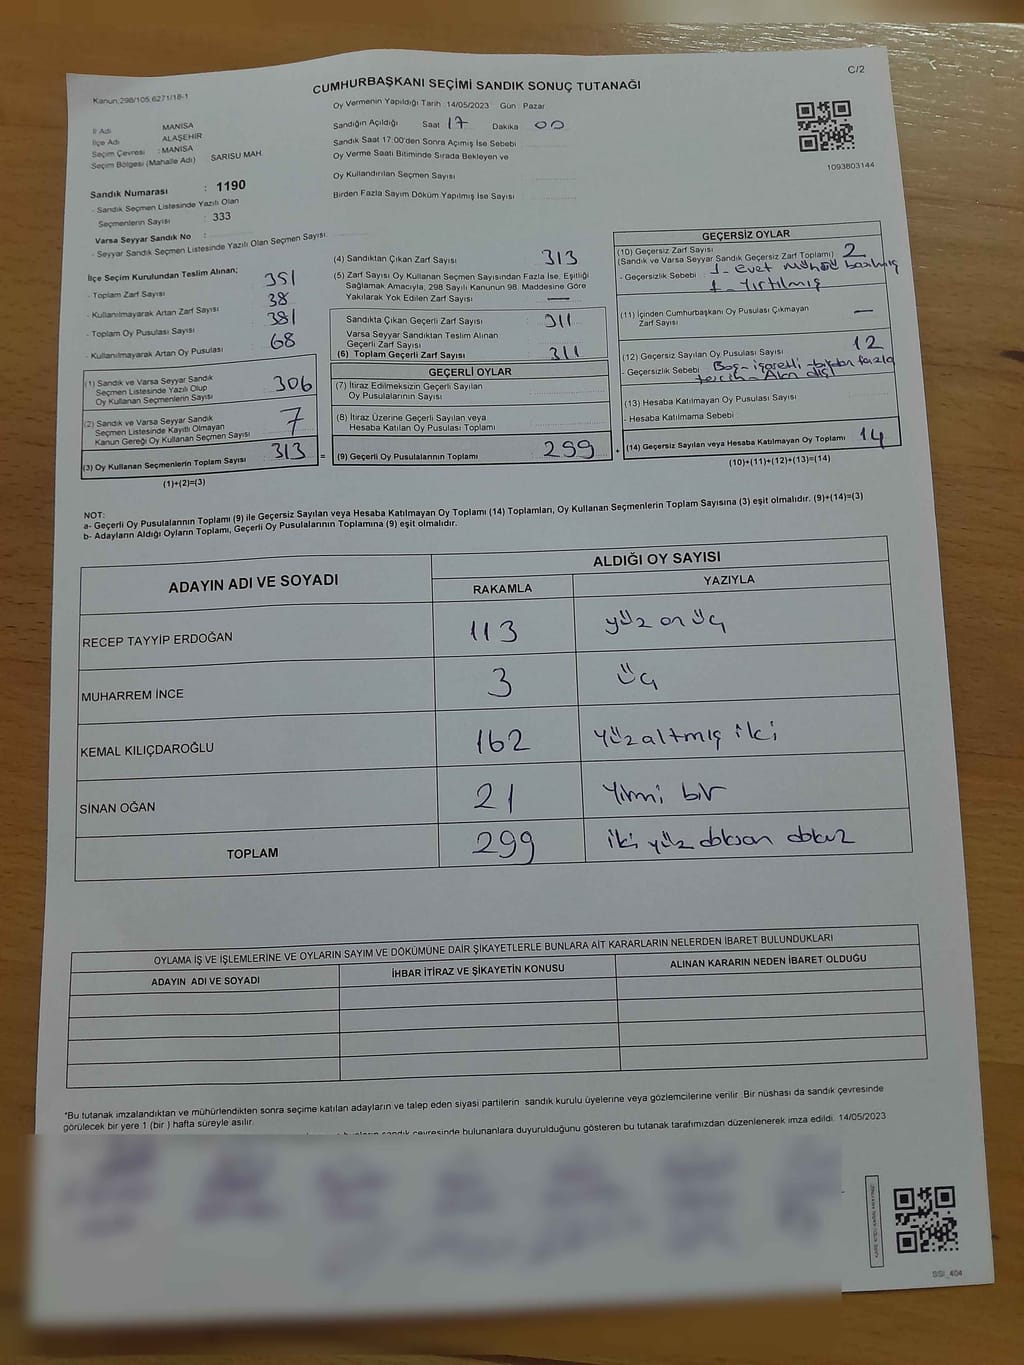 C/2
Kanun:298/105,6271/18-1
CUMHURBAŞKANI SEÇİMİ SANDIK SONUÇ TUTANAĞI
Oy Vermenin Yapıldığı Tarih : 14/05/2023 Gün : Pazar
İl Adı MANİSA
İlçe Adı ALAŞEHİR
Seçim Çevresi : MANİSA
Seçim Bölgesi (Mahalle Adı) SARISU MAH.
Sandığın Açıldığı Saat 17 Dakika 00
Sandık Saat 17:00'den Sonra Açımış İse Sebebi
Oy Verme Saati Bitiminde Sırada Bekleyen ve
Oy Kullandırılan Seçmen Sayısı
Birden Fazla Sayım Döküm Yapılmış İse Sayısı
1093803144
Sandık Numarası : 1190
- Sandık Seçmen Listesinde Yazılı Olan
Seçmenlerin Sayısı : 333
Varsa Seyyar Sandık No :
- Seyyar Sandık Seçmen Listesinde Yazılı Olan Seçmen Sayısı:
İlçe Seçim Kurulundan Teslim Alınan;
- Toplam Zarf Sayısı 351
- Kullanılmayarak Artan Zarf Sayısı 38
- Toplam Oy Pusulası Sayısı 381
- Kullanılmayarak Artan Oy Pusulası 68
(1) Sandık ve Varsa Seyyar Sandık
Seçmen Listesinde Yazılı Olup
Oy Kullanan Seçmenlerin Sayısı 306
(2) Sandık ve Varsa Seyyar Sandık
Seçmen Listesinde Kayıtlı Olmayan
Kanun Gereği Oy Kullanan Seçmen Sayısı 7
(3) Oy Kullanan Seçmenlerin Toplam Sayısı 313 =
(1)+(2)=(3)
(4) Sandıktan Çıkan Zarf Sayısı 313
(5) Zarf Sayısı Oy Kullanan Seçmen Sayısından Fazla İse, Eşitliği
Sağlamak Amacıyla; 298 Sayılı Kanunun 98. Maddesine Göre
Yakılarak Yok Edilen Zarf Sayısı —
Sandıkta Çıkan Geçerli Zarf Sayısı 311
Varsa Seyyar Sandıktan Teslim Alınan
Geçerli Zarf Sayısı
(6) Toplam Geçerli Zarf Sayısı 311
GEÇERLİ OYLAR
(7) İtiraz Edilmeksizin Geçerli Sayılan
Oy Pusulasının Sayısı
(8) İtiraz Üzerine Geçerli Sayılan veya
Hesaba Katılan Oy Pusulası Toplamı
(9) Geçerli Oy Pusulalarının Toplamı 299 +
GEÇERSİZ OYLAR
(10) Geçersiz Zarf Sayısı 2
(Sandık ve Varsa Seyyar Sandık Geçersiz Zarf Toplamı)
- Geçersizlik Sebebi : 1- Evet Mührü basılmış
1- Yırtılmış
(11) İçinden Cumhurbaşkanı Oy Pusulası Çıkmayan
Zarf Sayısı —
(12) Geçersiz Sayılan Oy Pusulası Sayısı 12
- Geçersizlik Sebebi Boş - işaretli - birden fazla
tercih - Alan dışı
(13) Hesaba Katılmayan Oy Pusulası Sayısı
- Hesaba Katılmama Sebebi :
(14) Geçersiz Sayılan veya Hesaba Katılmayan Oy Toplamı 14
(10)+(11)+(12)+(13)=(14)
NOT:
a- Geçerli Oy Pusulalarının Toplamı (9) ile Geçersiz Sayılan veya Hesaba Katılmayan Oy Toplamı (14) Toplamları, Oy Kullanan Seçmenlerin Toplam Sayısına (3) eşit olmalıdır. (9)+(14)=(3)
b- Adayların Aldığı Oyların Toplamı, Geçerli Oy Pusulalarının Toplamına (9) eşit olmalıdır.
ADAYIN ADI VE SOYADI ALDIĞI OY SAYISI
RAKAMLA YAZIYLA
RECEP TAYYİP ERDOĞAN 113 yüz on üç
MUHARREM İNCE 3 üç
KEMAL KILIÇDAROĞLU 162 yüzaltmış iki
SİNAN OĞAN 21 Yirmi bir
TOPLAM 299 iki yüz doksan dokuz
OYLAMA İŞ VE İŞLEMLERİNE VE OYLARIN SAYIM VE DÖKÜMÜNE DAİR ŞİKAYETLERLE BUNLARA AİT KARARLARIN NELERDEN İBARET BULUNDUKLARI
ADAYIN ADI VE SOYADI İHBAR İTİRAZ VE ŞİKAYETİN KONUSU ALINAN KARARIN NEDEN İBARET OLDUĞU
*Bu tutanak imzalandıktan ve mühürlendikten sonra seçime katılan adayların ve talep eden siyasi partilerin sandık kurulu üyelerine veya gözlemcilerine verilir. Bir nüshası da sandık çevresinde
görülecek bir yere 1 (bir ) hafta süreyle asılır.
sandık çevresinde bulunanlara duyurulduğunu gösteren bu tutanak tarafımızdan düzenlenerek imza edildi. 14/05/2023
SSI_404